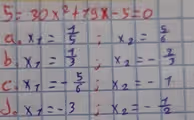 5 = 30x² + 19x - 5 = 0
a. x₁ = 1/5 ; x₂ = 5/6
b. x₁ = 1/3 ; x₂ = -2/3
c. x₁ = -5/6 ; x₂ = -1
d. x₁ = -3 ; x₂ = -1/2